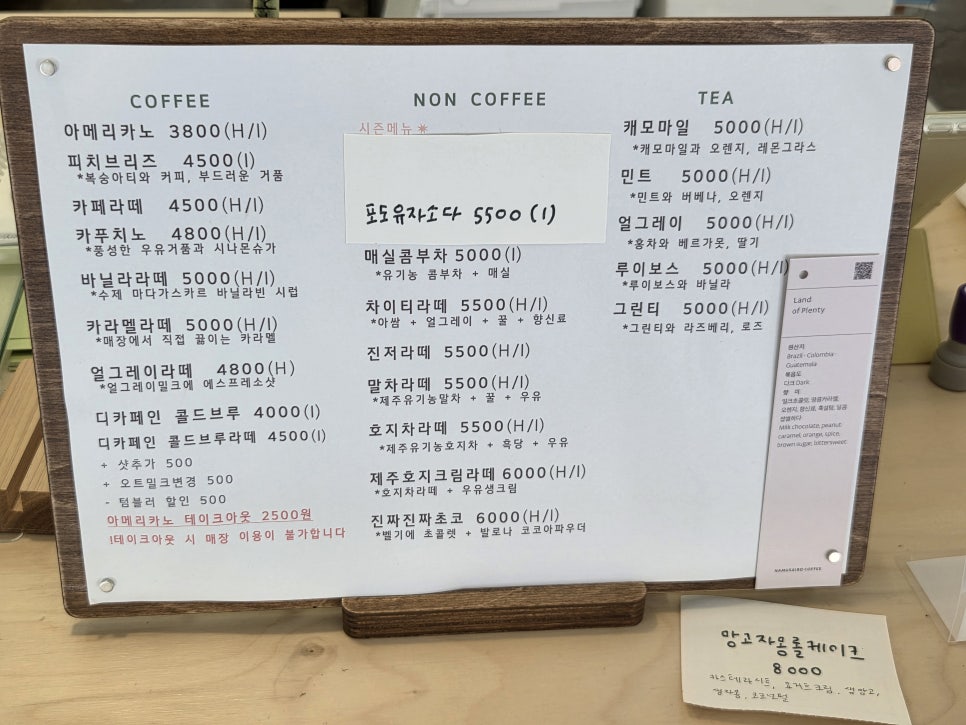 COFFEE
아메리카노 3800(H/I)
피치브리즈 4500(I)
*복숭아티와 커피, 부드러운 거품
카페라떼 4500(H/I)
카푸치노 4800(H/I)
*풍성한 우유거품과 시나몬슈가
바닐라라떼 5000(H/I)
*수제 마다가스카르 바닐라빈 시럽
카라멜라떼 5000(H/I)
*매장에서 직접 끓이는 카라멜
얼그레이라떼 4800(H)
*얼그레이밀크에 에스프레소샷
디카페인 콜드브루 4000(I)
디카페인 콜드브루라떼 4500(I)
+ 샷추가 500
+ 오트밀크변경 500
- 텀블러 할인 500
아메리카노 테이크아웃 2500원
!테이크아웃 시 매장 이용이 불가합니다
NON COFFEE
시즌메뉴*
포도유자소다 5500 (I)
매실콤부차 5000(I)
*유기농 콤부차 + 매실
차이티라떼 5500(H/I)
*아쌈 + 얼그레이 + 꿀 + 향신료
진저라떼 5500(H/I)
말차라떼 5500(H/I)
*제주유기농말차 + 꿀 + 우유
호지차라떼 5500(H/I)
*제주유기농호지차 + 흑당 + 우유
제주호지크림라떼 6000(H/I)
*호지차라떼 + 우유생크림
진짜진짜초코 6000(H/I)
*벨기에 초콜렛 + 발로나 코코아파우더
TEA
캐모마일 5000(H/I)
*캐모마일과 오렌지, 레몬그라스
민트 5000(H/I)
*민트와 버베나, 오렌지
얼그레이 5000(H/I)
*홍차와 베르가못, 딸기
루이보스 5000(H/I)
*루이보스와 바닐라
그린티 5000(H/I)
*그린티와 라즈베리, 로즈
Land
of Plenty
원산지
Brazil · Colombia ·
Guatemala
볶음도
다크 Dark
향 미
밀크초콜릿, 땅콩카라멜,
오렌지, 향신료, 흑설탕, 달콤
쌉쌀하다
Milk chocolate, peanut
caramel, orange, spice,
brown sugar, bittersweet
NAMUSAIRO COFFEE
망고자몽롤케이크
8000
카스테라시트, 요거트크림, 생망고,